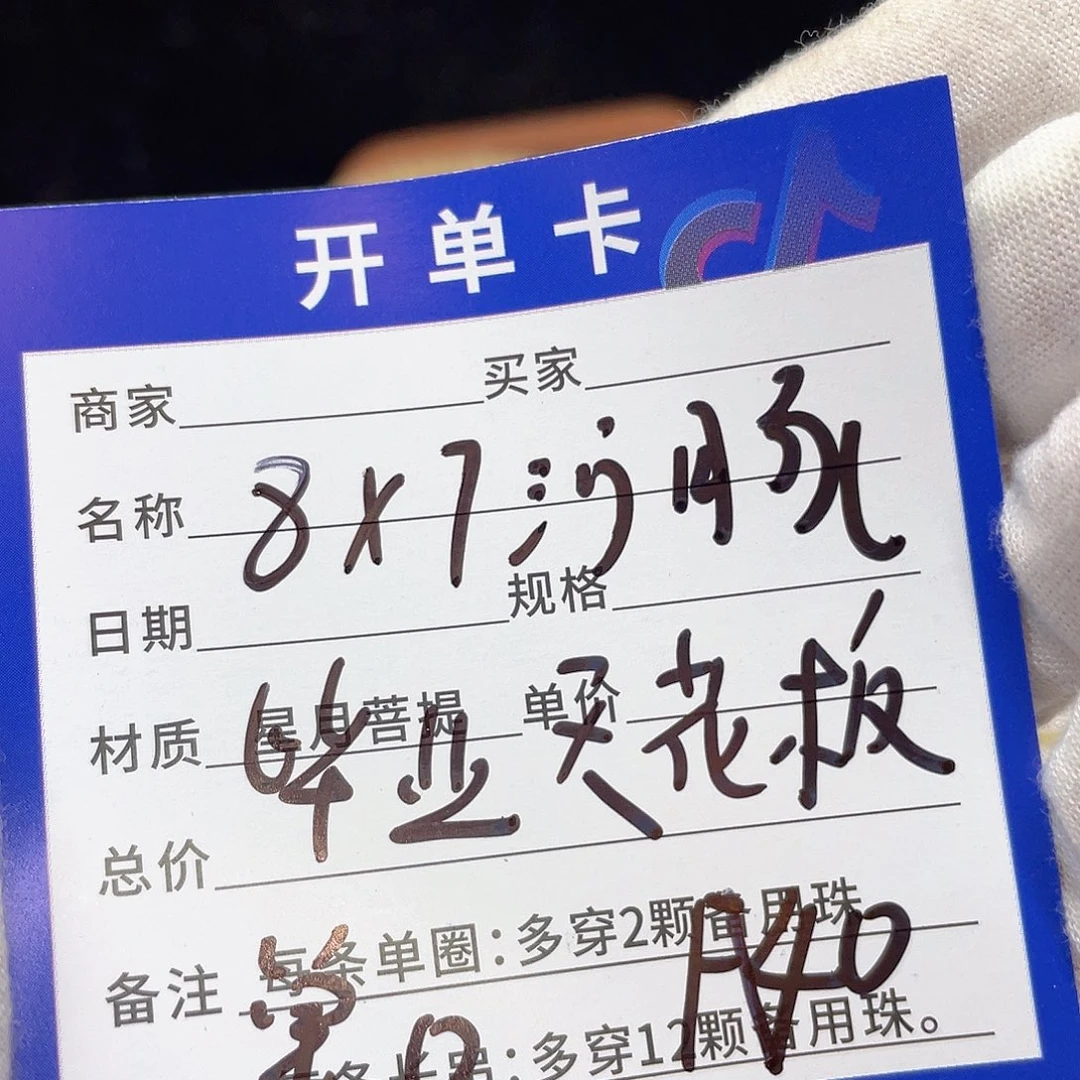 开单卡
商家 买家
名称 8x7河豚
日期 规格
材质 星月菩提 单价
毕业天花板
总价
备注 每条单圈：多穿2颗备用珠
每条长串：多穿12颗备用珠。